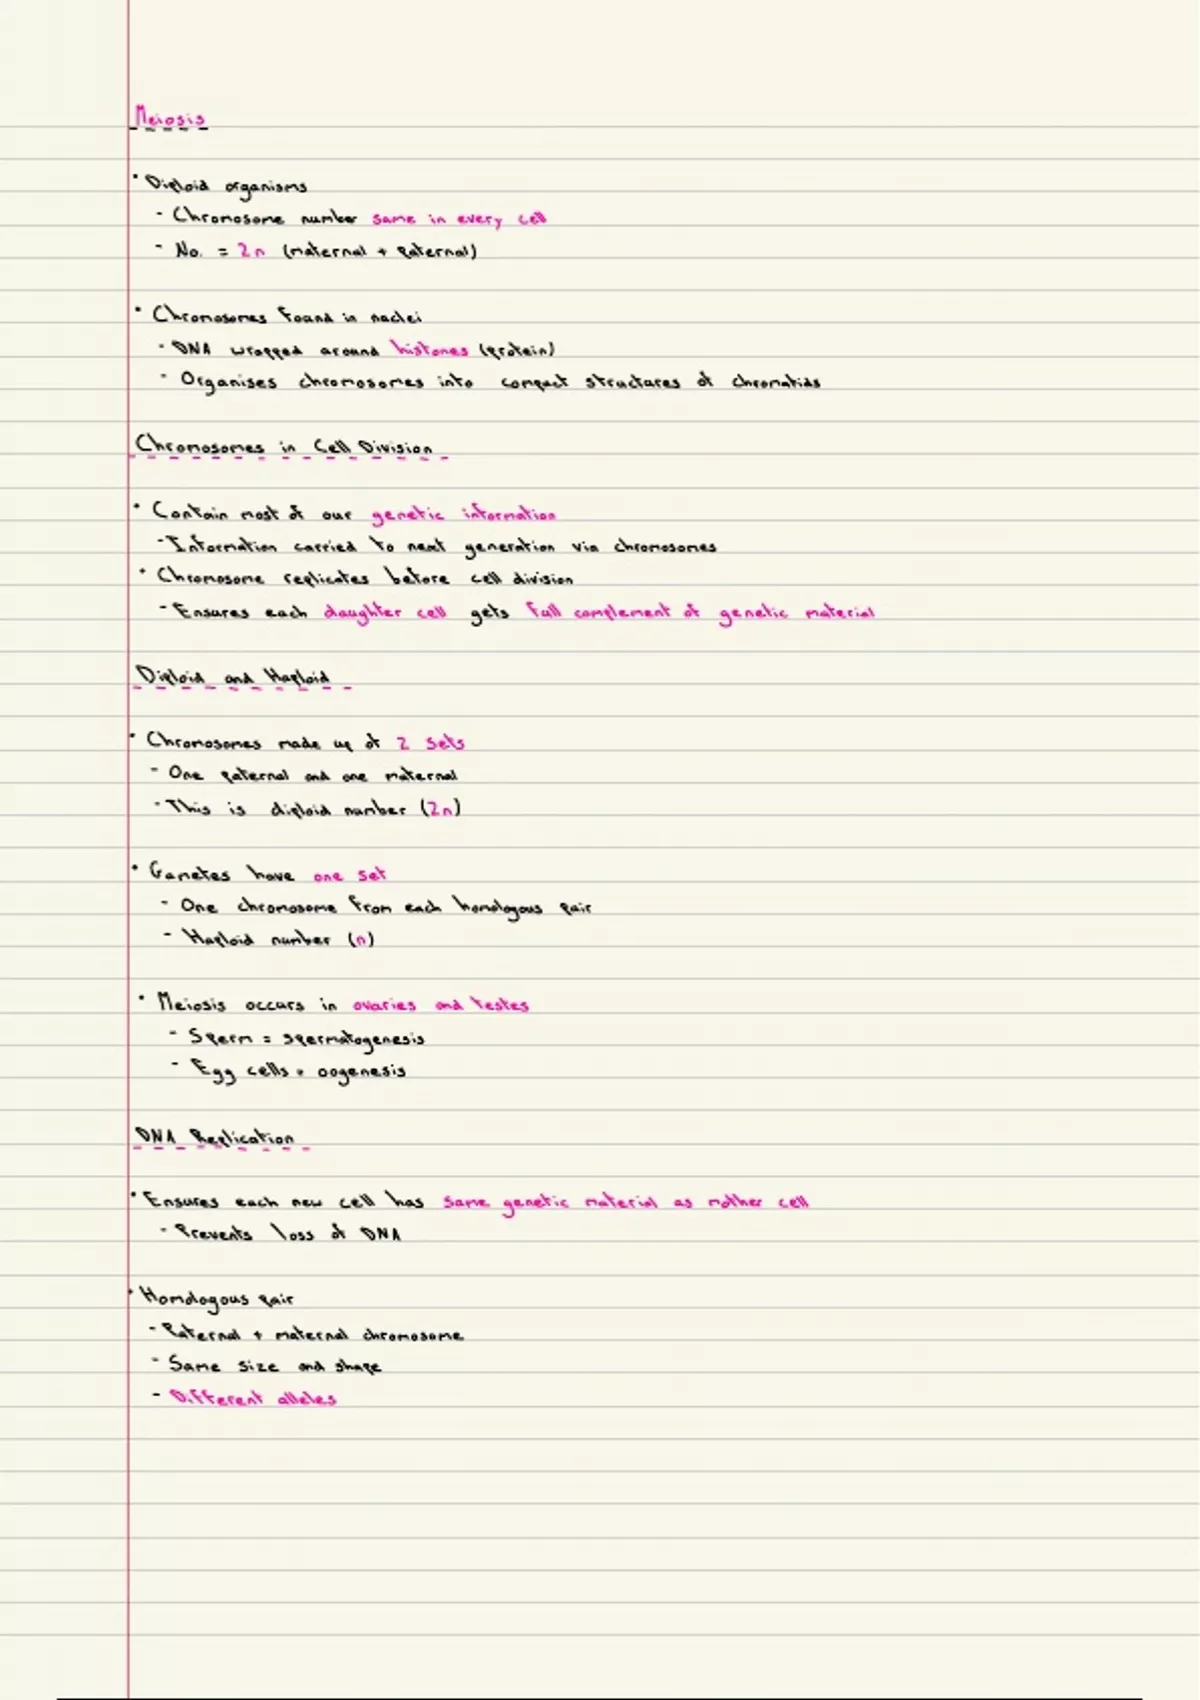 Meiosis
• Diploid organisms
- Chromosome number same in every cell
- No. = 2n (maternal + paternal)
• Chromosomes found in nuclei
- DNA wrapped around histones (protein)
- Organises chromosomes into compact structures of chromatids
Chromosomes in Cell Division
• Contain most of our genetic information
- Information carried to next generation via chromosomes
• Chromosome replicates before cell division
- Ensures each daughter cell gets full complement of genetic material
Diploid and Haploid
• Chromosomes made up of 2 sets
- One paternal and one maternal
- This is diploid number (2n)
• Gametes have one set
- One chromosome from each homologous pair
- Haploid number (n)
• Meiosis occurs in ovaries and testes
- Sperm = spermatogenesis
- Egg cells = oogenesis
DNA Replication
• Ensures each new cell has same genetic material as mother cell
- Prevents loss of DNA
• Homologous pair
- Paternal + maternal chromosome
- Same size and shape
- Different alleles